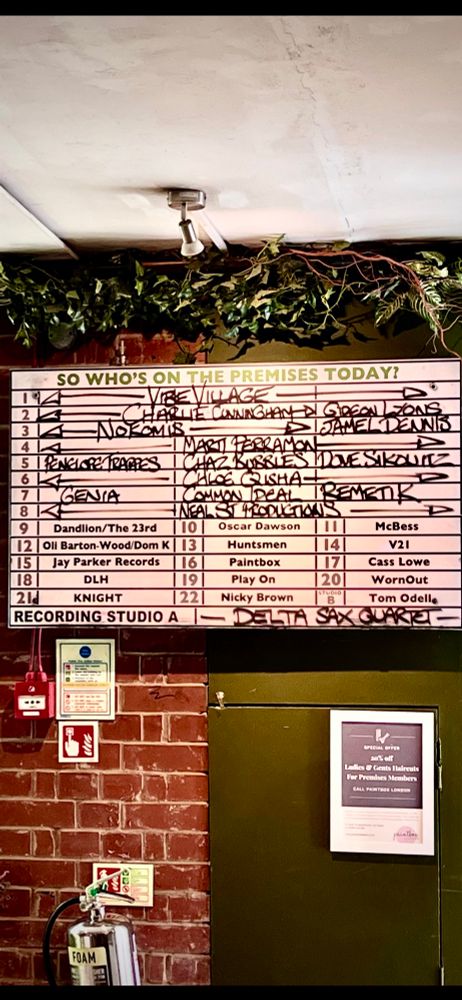 SO WHO'S ON THE PREMISES TODAY?
1 VIBE VILLAGE
2 CHARLIE CUNNINGHAM GIDEON LYONS
3 NOKOMIS JAMEL DENNIS
4 MARTI PERRAMON
5 PENELOPE TRAPPES CHAZ BUBBLES DOVE SIKOWITZ
6 CHLOE QISHA
7 GENIA COMMON IDEAL REMETIK
8 NEAL ST PRODUCTIONS
9 Dandlion/The 23rd 10 Oscar Dawson 11 McBess
12 Oli Barton-Wood/Dom K 13 Huntsmen 14 V21
15 Jay Parker Records 16 Paintbox 17 Cass Lowe
18 DLH 19 Play On 20 WornOut
21 KNIGHT 22 Nicky Brown STUDIO B Tom Odell
RECORDING STUDIO A DELTA SAX QUARTET
SPECIAL OFFER
20% off
Ladies & Gents Haircuts
For Premises Members
CALL PAINTBOX LONDON
paintbox
FOAM